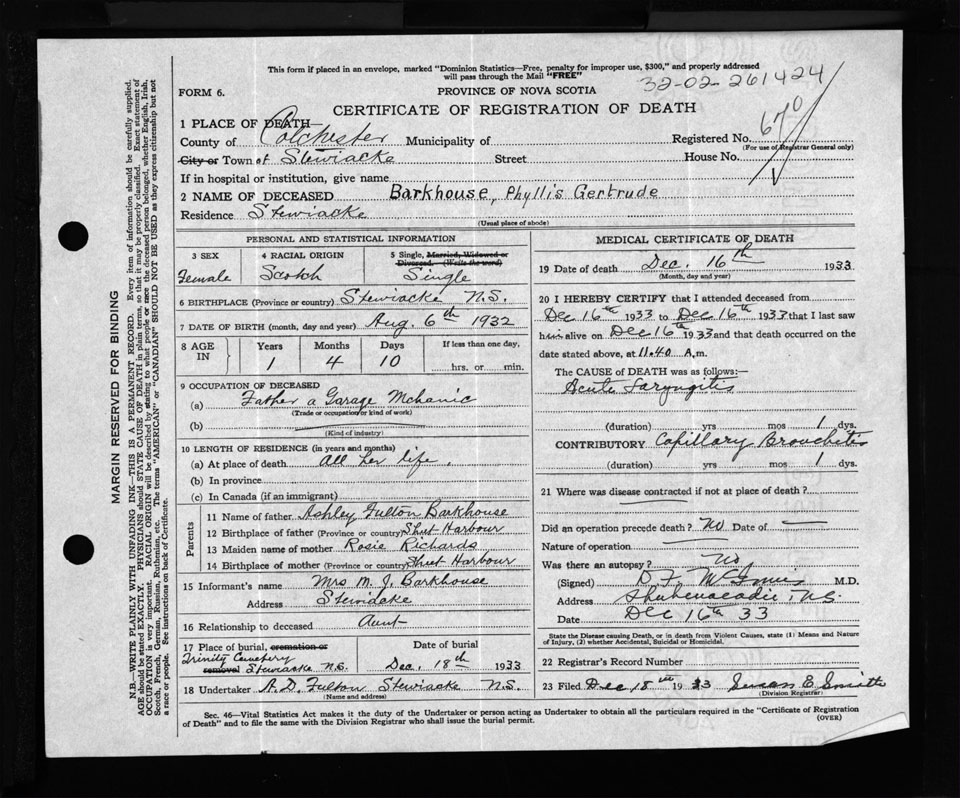 This form if placed in an envelope, marked "Dominion Statistics—Free, penalty for improper use, $300," and properly addressed
will pass through the Mail "FREE"
32-02-261424
FORM 6.
PROVINCE OF NOVA SCOTIA
CERTIFICATE OF REGISTRATION OF DEATH
1 PLACE OF DEATH—
County of Colchester Municipality of
Registered No. 670
(For use of Registrar General only)
City or Town of Stewiacke Street House No.
If in hospital or institution, give name
2 NAME OF DECEASED Barkhouse, Phyllis Gertrude
Residence Stewiacke
(Usual place of abode)
PERSONAL AND STATISTICAL INFORMATION
3 SEX
Female
4 RACIAL ORIGIN
Scotch
5 Single, Married, Widowed or
Divorced. (Write the word)
Single
6 BIRTHPLACE (Province or country) Stewiacke N.S.
7 DATE OF BIRTH (month, day and year) Aug. 6th 1932
8 AGE
IN
Years
1
Months
4
Days
10
If less than one day,
hrs. or min.
9 OCCUPATION OF DECEASED
(a) Father a Garage Mchanic
(Trade or occupation or kind of work)
(b)
(Kind of industry)
10 LENGTH OF RESIDENCE (in years and months)
(a) At place of death all her life.
(b) In province
(c) In Canada (if an immigrant)
Parents
11 Name of father Ashley Fulton Barkhouse
12 Birthplace of father (Province or country) Shut Harbour
13 Maiden name of mother Rosie Richards
14 Birthplace of mother (Province or country) Shut Harbour
15 Informant's name Mrs M. J. Barkhouse
Address Stewiacke
16 Relationship to deceased Aunt
17 Place of burial, cremation or
removal
Trinity Cemetery
Stewiacke N.S.
Date of burial
Dec. 18th 1933
18 Undertaker A. D. Fulton Stewiacke N.S.
(Name and address)
MEDICAL CERTIFICATE OF DEATH
19 Date of death Dec. 16th 1933
(Month, day and year)
20 I HEREBY CERTIFY that I attended deceased from
Dec 16th 1933 to Dec 16th 1933 that I last saw
him alive on Dec 16th 1933 and that death occurred on the
date stated above, at 11.40 A.m.
The CAUSE of DEATH was as follows:—
Acute Laryngitis
(duration) yrs mos 1 dys.
CONTRIBUTORY Capillary Bronchitis
(duration) yrs mos 1 dys.
21 Where was disease contracted if not at place of death?
Did an operation precede death? No Date of —
Nature of operation —
Was there an autopsy? No
(Signed) D. F. M.D.
Address Shubenacadie, N.S.
Date Dec 16th 33
State the Disease causing Death, or in death from Violent Causes, state (1) Means and Nature
of Injury, (2) whether Accidental, Suicidal or Homicidal.
22 Registrar's Record Number
23 Filed Dec 18th 1933 E. Smith
(Division Registrar)
Sec. 46—Vital Statistics Act makes it the duty of the Undertaker or person acting as Undertaker to obtain all the particulars required in the "Certificate of Registration
of Death" and to file the same with the Division Registrar who shall issue the burial permit.
(OVER)
MARGIN RESERVED FOR BINDING
N.B.—WRITE PLAINLY WITH UNFADING INK—THIS IS A PERMANENT RECORD. Every item of information should be carefully supplied.
AGE should be stated EXACTLY. PHYSICIANS should STATE CAUSE OF DEATH in plain terms, so that it may be properly classified. Exact statement of
OCCUPATION is very important. RACIAL ORIGIN will be described by stating to what people or race the deceased person belonged, whether English, Irish,
Scotch, French, German, Russian, Ruthenian, etc. The terms "AMERICAN" or "CANADIAN" SHOULD NOT BE USED as they express citizenship but not
a race or people. See instructions on back of Certificate.